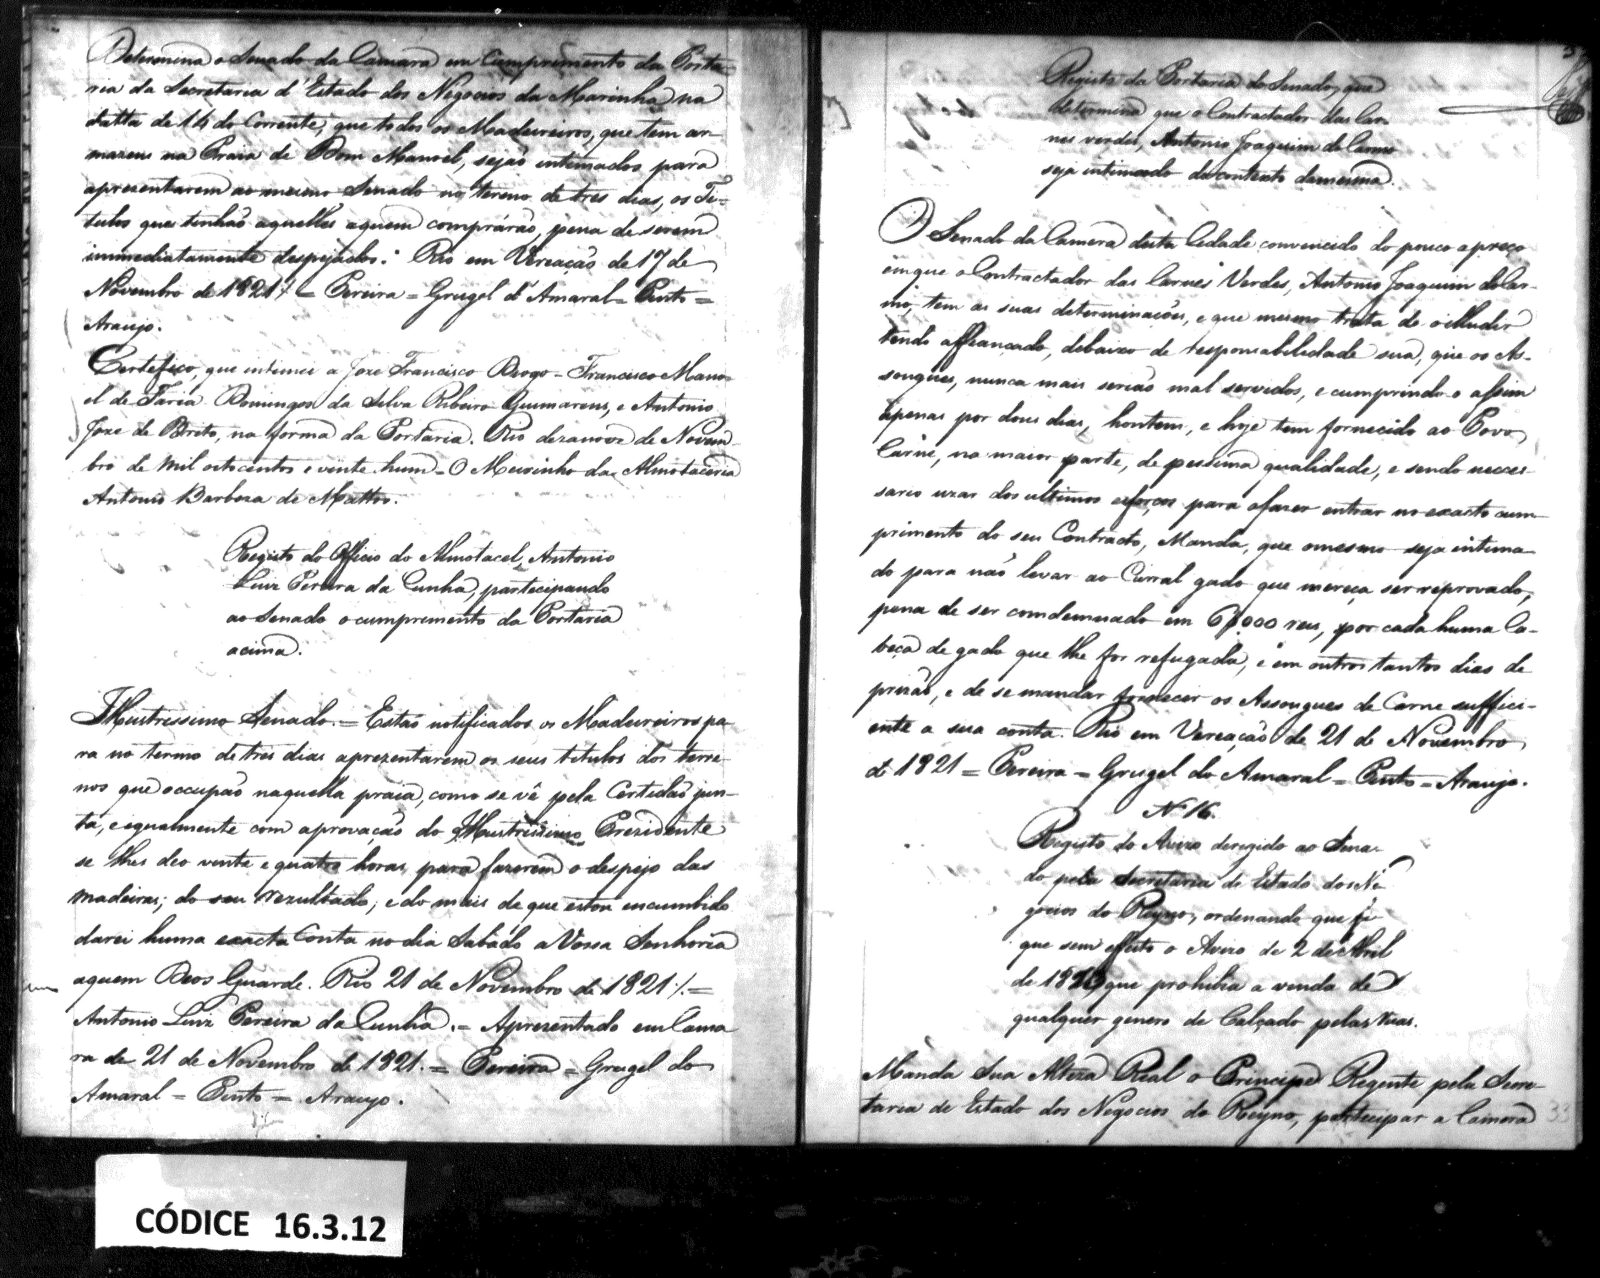 Determina o Senado da Camara em Cumprimento da Porta=
ria da Secretaria d'Estado dos Negocios da Marinha na
datta de 14 do Corrente, que todos os Madeireiros, que tem ar-
mazens na Praia de Dom Manoel, sejaõ intimados para
aprezentarem ao mesmo Senado no termo de tres dias, os Ti=
tulos que tenhaõ aquelles aquem compráraõ, pena de serem
immediatamente despejados. Rio em Vereaçaõ de 17 de
Novembro de 1821 = Pereira = Grugel d'Amaral = Pinto =
Araujo.
Certefico, que intimei a Joze Francisco Diogo = Francisco Mano=
el de Faria Domingos da Silva Ribeiro Guimarens, e Antonio
Joze de Brito, na forma da Portaria. Rio dezanove de Novem-
bro de mil oitocentos e vinte hum = O Meirinho da Almotaceria
Antonio Barboza de Mattos.
Registo do Officio do Almotacel, Antonio
Luiz Pereira da Cunha, participando
ao Senado o cumprimento da Portaria
acima.
Illustrissimo Senado. = Estaõ notificados os Madeireiros pa
ra no termo de tres dias aprezentarem os seus titulos dos terre-
nos que occupaõ naquella praia, como se vê pela Certidaõ jun-
ta, e igualmente com aprovaçaõ do Illustrissimo Prezidente
se lhes deo vinte e quatro horas, para fazerem o despejo das
madeiras; do seu rezultado, e do mais de que estou encumbido
darei huma exacta Conta no dia Sabado a Vossa Senhoria
aquem Deos Guarde. Rio 21 de Novembro de 1821 /. =
Antonio Luiz Pereira da Cunha. = Aprezentado em Cama
ra de 21 de Novembro de 1821. = Pereira = Grugel do
Amaral = Pinto = Araujo.
Registo da Portaria do Senado, que
determina que o Contractador das Car
nes verdes, Antonio Joaquim do Carmo
seja intimado do contexto da mesma.
O Senado da Camera desta Cidade convencido do pouco apreço
em que o Contractador das Carnes Verdes, Antonio Joaquim do Car-
mo, tem as suas determinaçoens, e que mesmo trata de o illudir
tendo affiançado, debaixo de responsabilidade sua, que os As-
sougues, nunca mais seriaõ mal servidos, e cumprindo o assim
apenas por dous dias, hontem, e hoje tem fornecido ao Povo
Carne, na maior parte, de pessima qualidade, e sendo neces
sario uzar dos ultimos esforços para o fazer entrar no exacto cum
primento do seu Contracto, Manda, que o mesmo seja intima
do para naõ levar ao Curral gado que mereça ser reprovado,
pena de ser comdemnado em 6$000 reis, por cada huma Ca-
beça de gado que lhe for refugada, e em outros tantos dias de
prizaõ, e de se mandar fornecer os Assougues de Carne suffici-
ente a sua conta. Rio em Vereaçaõ de 21 de Novembro
de 1821 = Pereira = Grugel do Amaral = Pinto = Araujo.
Nº 16.
Registo do Avizo deregido ao Sena-
do pela Secretaria de Estado dos Ne
gocios do Reyno, ordenando que fi
que sem effeito o Avizo de 2 de Abril
de que prohibia a venda de
qualquer genero de Calçado pelas ruas.
Manda Sua Alteza Real o Principe Regente pela Secre-
taria de Estado dos Negocios do Reyno, partecipar a Camera
33
CÓDICE 16.3.12